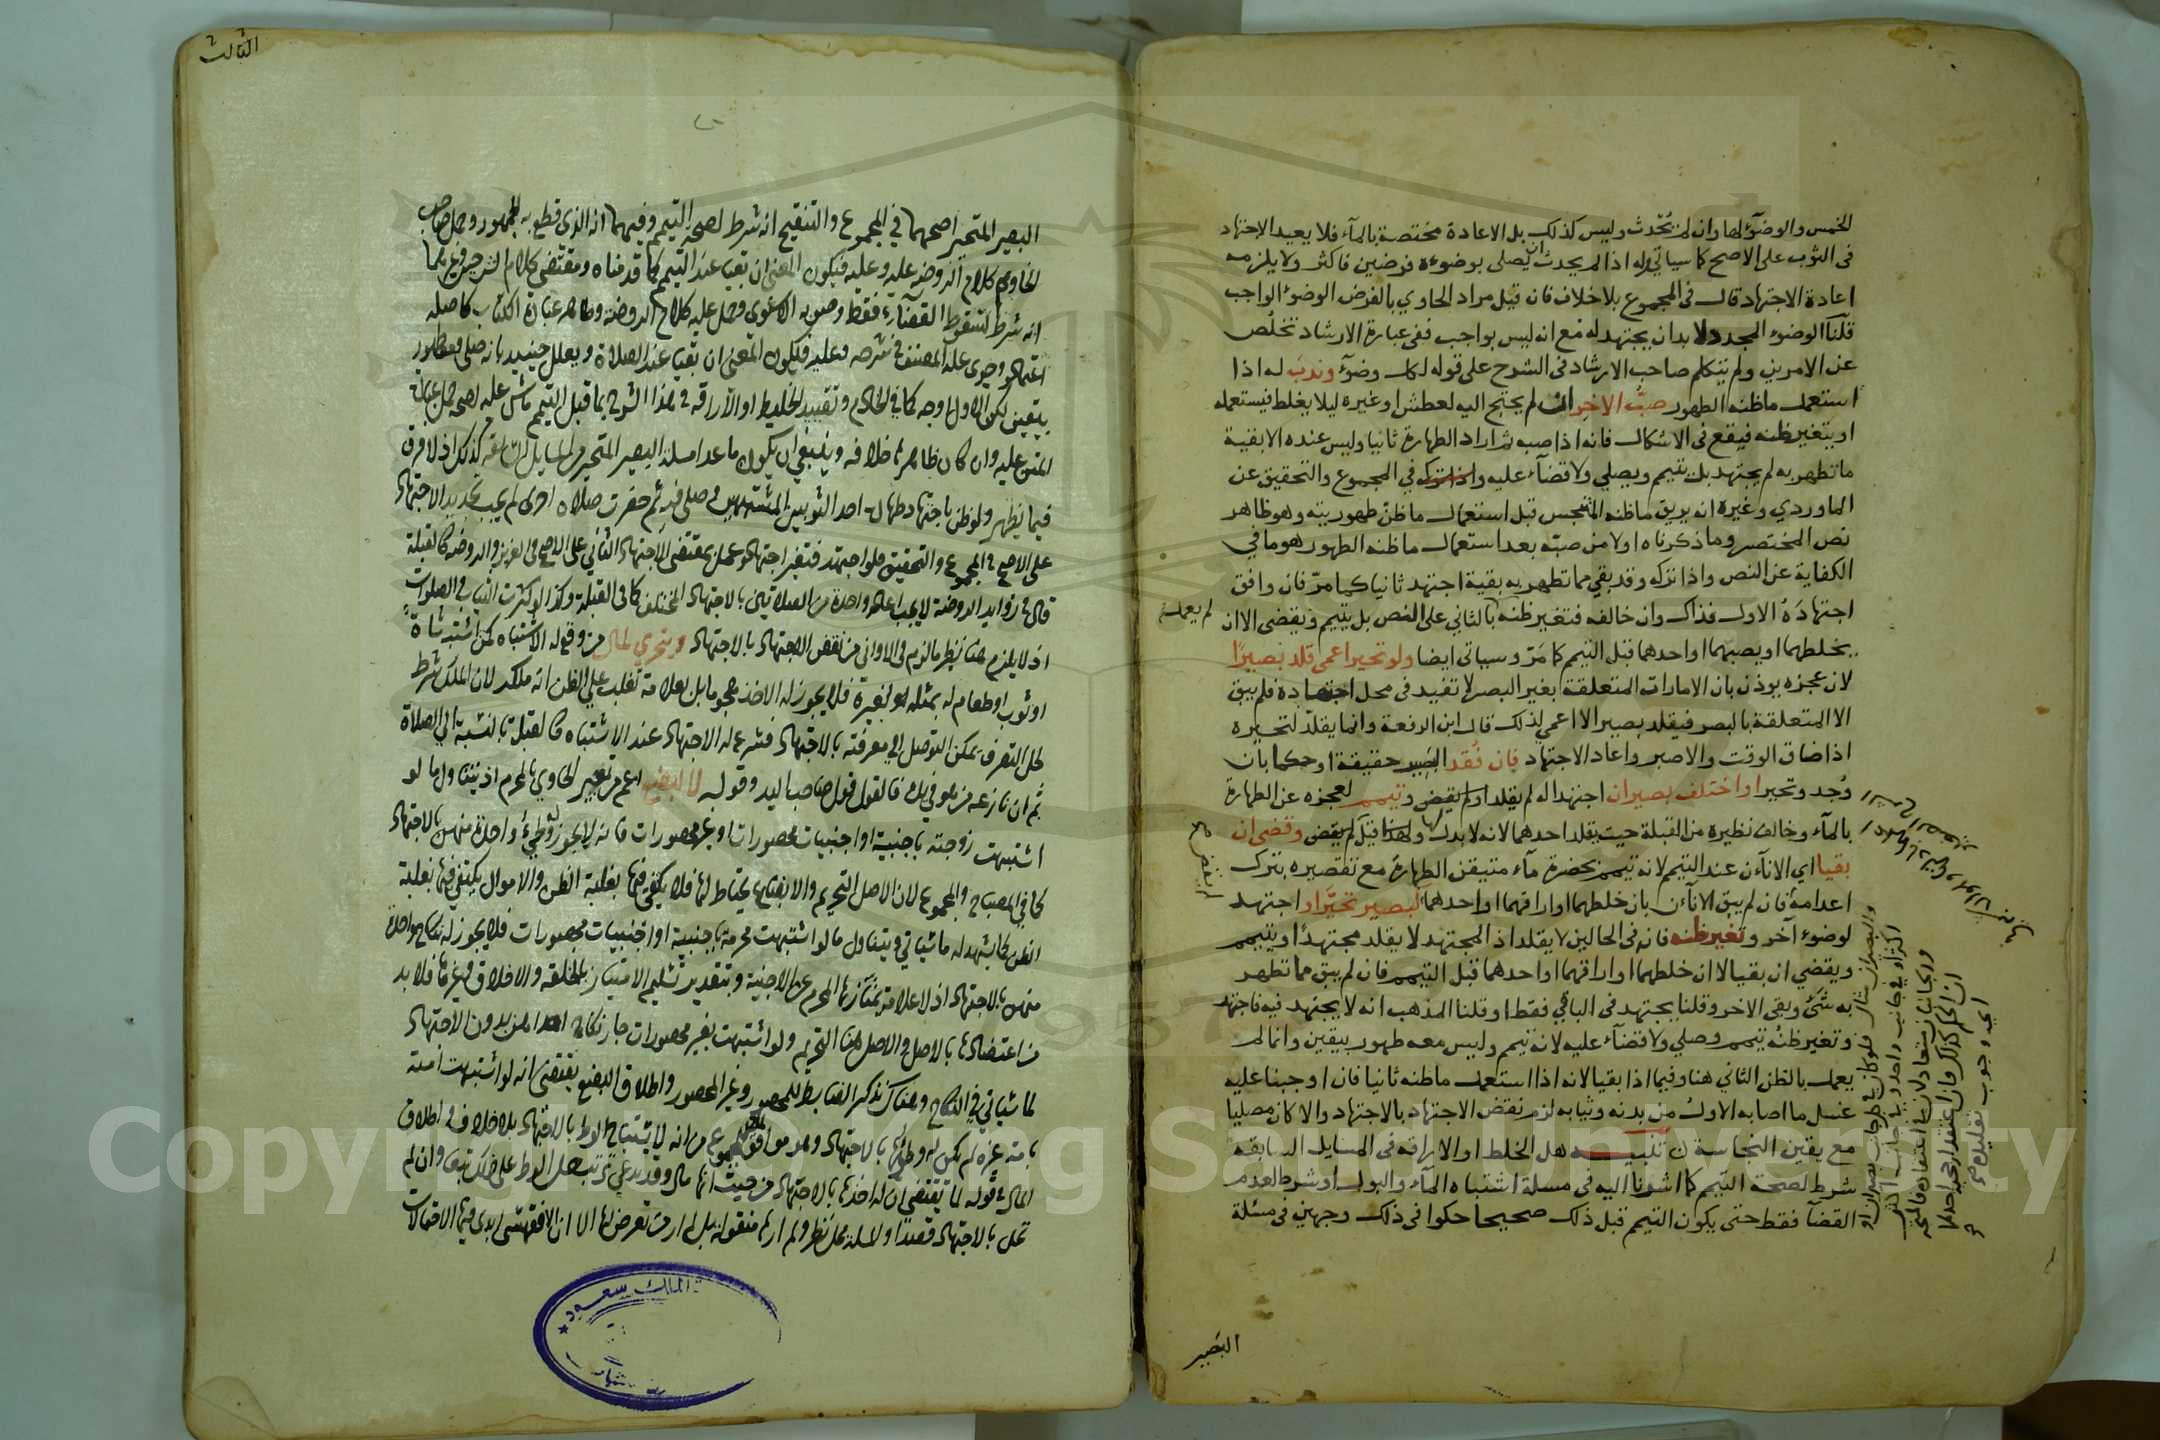 الخمس والوضوء لها وان لم يُحْدث وليس كذلك بل الاعادة مختصة بالمآء فلا يعيد الاجتهاد
فى الثوب على الاصح كما سياتي وله اذا لم يحدث ان يصلى بوضوءه فرضين فاكثر ولا يلزمه
اعادة الاجتهاد قال فى المجموع بلا خلاف فان قيل مراد الحاوي بالفرض الوضوء الواجب
قلنا الوضوء المجدد لا بد ان يجتهد له مع انه ليس بواجب ففى عبارة الارشاد تخلُص
عن الامرين ولم يتكلم صاحب الارشاد فى الشرح على قوله لكل وضوءٍ وندبَ له اذا
استعمل ما ظنه الطهور صبُّ الاخر ان لم يحتج اليه لعطش او غيره ليلا يغلط فيستعمله
او يتغير ظنه فيقع فى الاشكال فانه اذا صبه ثم اراد الطهارة ثانيا وليس عنده الا بقية
ما تطهر به لم يجتهد بل يتيمم ويصلي ولا قضآء عليه في المجموع والتحقيق عن
الماوردي وغيره انه يريق ما ظنه المتنجس قبل استعمال ما ظن طهوريته وهو ظاهر
نص المختصر وما ذكرناه اولا من صبّه بعد استعمال ما ظنه الطهور هو ما في
الكفاية عن النص واذا تركه وقد بقي مما تطهر به بقية اجتهد ثانيا كما مرّ فان وافق
اجتهادهُ الاول فذاك وان خالفه فتغير ظنه لم يعمل بالثاني على النص بل يتيمم ويقضى الا ان
يخلطهما او يصبهما او احدهما قبل التيمم كما مَرّ وسياتى ايضا ولو تحير اعمى قلد بصيرًا
لان عجزه يوذن بان الامارات المتعلقة بغير البصر لا تفيد فى محل اجتهاده فلم يبق
الا المتعلقة بالبصر فيقلد بصير الاعمى لذلك قال ابن الرفعة وانما يقلد لتحيره
اذا ضاق الوقت والا صبر واعاد الاجتهاد فان فُقد البصير حقيقة او حكما بان
وُجد وتحير او اختلف بصيران اجتهدا له لم يقلد وتيمم لعجزه عن الطهارة
بالمآء وخالف نظيره من القبلة حيث يقلد احدهما لانه لا بدل لها ولهذا قيل لم يقض وقضى ان
بقيا اي الانآءن عند التيمم لانه تيمم بحضرة مآء متيقن الطهارة مع تقصيره بترك
اعدامه فان لم يبق الانآءن بان خلطهما او اراقهما او احدهما كبصير تحيّر او اجتهد
لوضوء آخر وتغير ظنه فانه فى الحالين لا يقلد اذ المجتهد لا يقلد مجتهدًا ويتيمم
ويقضي ان بقيا لا ان خلطهما او اراقهما او احدهما قبل التيمم فان لم يبق مما تطهر
به شَئٌ وبقى الاخر وقلنا يجتهد فى الباقي فقط او قلنا المذهب انه لا يجتهد فيه فاجتهد
وتغير ظنُه تيمم وصلي ولا قضآء عليه لانه تيمم وليس معه طهور بيقين وانما لم
يعمل بالظن الثاني هنا وفيما اذا بقيا لانه اذا استعمل ما ظنه ثانيا فان اوجبنا عليه
غسل ما اصابه الاولُ من بدنه وثيابه لزم نقض الاجتهاد بالاجتهاد والا كان مصليا
مع يقين النجاسة تنبيه هل الخلط او الاراقه فى المسايل السابقه
شرط لصحة التيمم كما اشرنا اليه فى مسلة اشتباه المآء والبول او شرط لعدم
القضآ فقط حتى يكون التيمم قبل ذلك صحيحا حكوا فى ذلك وجهين فى مسئلة
البصير
البصير المتحير اصحهما في المجموع والتنقيح انه شرط لصحة التيمم وفيهما انه الذى قطع به الجمهور وحمل صاحب
الحاوي كلام الروضه عليه وعليه فيكون المعنى ان بقيا عند التيمم كما قدمناه ومقتضى كلام الشرحين وغيرهما
انه شرط لسقوط القضآء فقط وصوبه الاسنوى وحمل عليه كلام الروضة وظاهر عبارة الكتاب كاصله
اعتماده وجرى عليه المصنف فى شرحه وعليه فيكون المعنى ان بقيا عند الصلاة ويعلل حينيد بانه صلى ومعه طهور
بيقين لكن الاول اوجه كما فى الخادم وتقييد الخليط او الاراقه فى هذا الشرح بما قبل التيمم ماش عليه لصحة حمل عبارة
المتن عليه وان كان ظاهرها خلافه وينبغي ان يكون ما عدا مسلة البصير المتحير من المسايل السابقه كذلك اذ لا فرق
فيما يظهر ولو ظن باجتهاد طهارة احد الثوبين المشتبهين وصلى فيه ثم حضرت صلاة اخرى لم يجب تجديد الاجتهاد
على الاصح فى المجموع والتحقيق فلو اجتهد فتغير اجتهاده عمل بمقتضى الاجتهاد الثاني على الاصح فى العزيز والروضه كالقبلة
قال فى زوايد الروضة لا يجب اعادة واحدة من الصلاتين بالاجتهاد المختلف كما فى القبلة وكذا لو كثرت الثياب والصلوات
اذ لا يلزم هنا نظير ما لزم فى الاوانى من نقض الاجتهاد بالاجتهاد ويتحري لمال من وقع له الاشتباه كمن اشتبه شاةٌ
او ثوب او طعام له بمثله لغيره فلا يجوز له الاخذ هجوما بل بعلامة تغلب على الظن انه ملكه لان الملك شرط
لحل التصرف يمكن التوصل الي معرفته بالاجتهاد فشرع له الاجتهاد عند الاشتباه كالقبلة بالنسبة الى الصلاة
ثم ان نازعه من هو فى يده فالقول قول صاحب اليد وقوله لا لبضع اعم من تعبير الحاوي بالمحرم اذ يتناول ما لو
اشتبهت زوجته باجنبية او اجنبيات محصورات او غير محصورات فانه لا يجوز له وطئُ واحدة منهن بالاجتهاد
كما فى المصباح والمجموع لان الاصل التحريم والابضاع يحتاط لها فلا يكفى فيها بغلبة الظن والاموال يكتفى فيها بغلبة
الظن كما يشهد له ما سياتي ويتناول ما لو اشتبهت محرمة باجنبية او اجنبيات محصورات فلا يجوز له نكاح واحدة
منهن بالاجتهاد اذ لا علامة تمتاز بها المحرم عن الاجنبية وبتقدير تسليم الامتياز بالخلقة والاخلاق فى غيرها فلا بد
من اعتضادها بالاصل والاصل هنا التحريم ولو اشتبهت بغير محصورات جاز نكاح احداهن بدون الاجتهاد
لما سياتي في النكاح وهناك نذكر الضابط للمحصور وغير المحصور واطلاق البضع يقتضى انه لو اشتبهت امته
بامة غيره لم يكن له وطؤها بالاجتهاد وهو موافق من انه لا يستباح الوطء بالاجتهاد بلا خلاف فى اطلاق
المال فى قوله لما يقتضى ان له اخذها بالاجتهاد من حيث انها مال وقد يدعى ترتب حل الوطء على ذلك تبعا وان لم
تحل بالاجتهاد قصدا والمسلة محل نظر ولم ارها منقوله بل لم ار من تعرض لها الا ان الافقهسى ابدى فيها الاحتمالات
الملك سعود